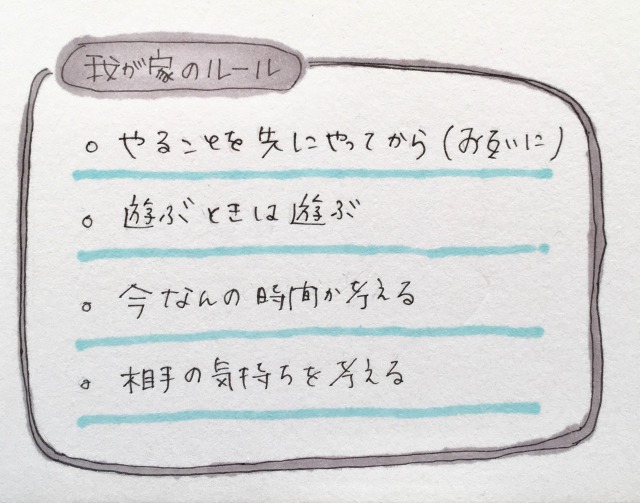 我が家のルール
○ やることを先にやってから(お互いに)
○ 遊ぶときは遊ぶ
○ 今なんの時間か考える
○ 相手の気持ちを考える